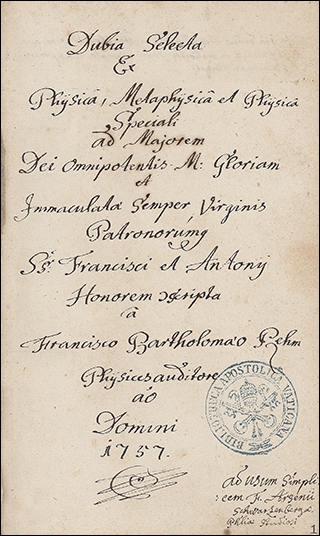 Dubia Selecta
Ex
Physicâ, Metaphysicâ et Physicâ
Speciali
ad Majorem
Dei Omnipotentis M: Gloriam
et
Immaculatæ Semper Virginis
Patronorumq
Ss. Francisci et Antonij
Honorem scripta
â
Francisco Bartholomæo Rehm
Physices auditore
ao
Domini
1757.
BIBLIOTHECA APOSTOLICA VATICANA
ad usum Simpli
cem F. Arsenii
Philiæ Studiosi
1